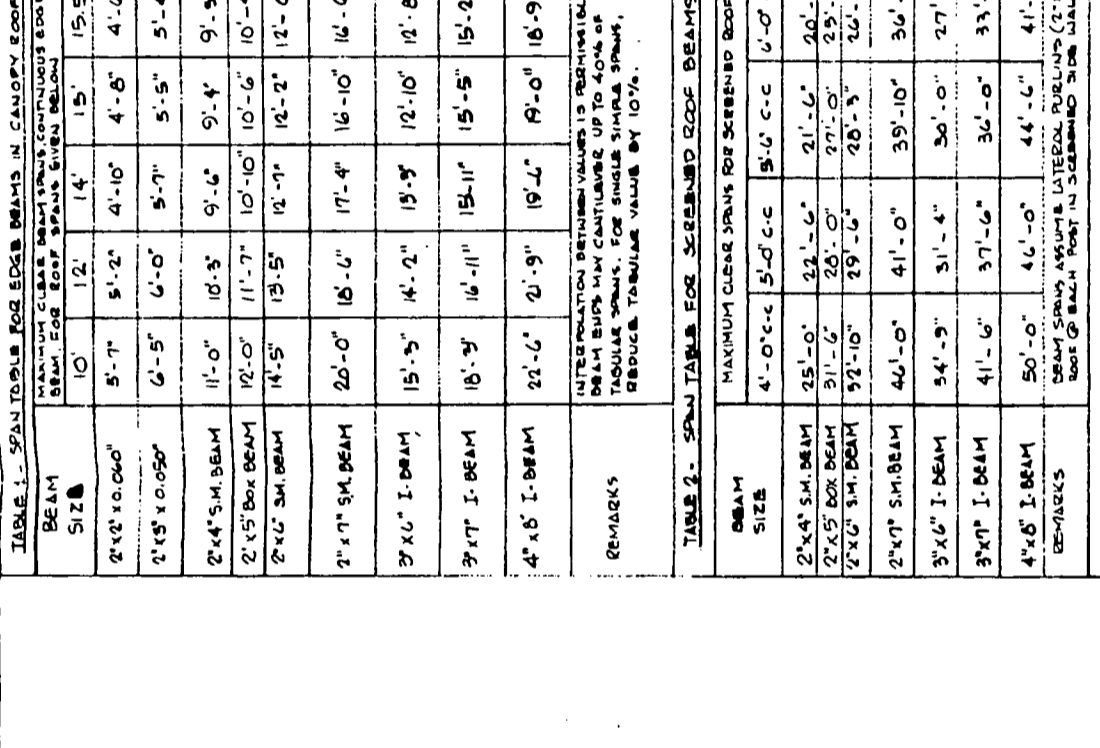 TABLE 1 - SPAN TABLE FOR EDGE BEAMS IN CANOPY ROOF
BEAM SIZE
MAXIMUM CLEAR BEAM SPANS, CONTINUOUS EDGE
BEAM FOR ROOF SPANS GIVEN BELOW
10' 12' 14' 15' 15.5
2"x2"x0.060" 5'-7" 5'-2" 4'-10" 4'-8" 4'-6
2"x3"x0.050" 6'-5" 6'-0" 5'-7" 5'-5" 5'-4
2"x4" S.M. BEAM 11'-0" 10'-3" 9'-6" 9'-4" 9'-3
2"x5" BOX BEAM 12'-0" 11'-7" 10'-10" 10'-6" 10'-4
2"x6" S.M. BEAM 14'-5" 13'-5" 12'-7" 12'-2" 12'-0
2"x7" S.M. BEAM 20'-0" 18'-6" 17'-4" 16'-10" 16'-6
3"x6" I-BEAM 15'-3" 14'-2" 13'-3" 12'-10" 12'-8
3"x7" I-BEAM 18'-3" 16'-11" 15'-11" 15'-5" 15'-2
4"x8" I-BEAM 22'-6" 21'-9" 19'-6" 19'-0" 18'-9
REMARKS
INTERPOLATION BETWEEN VALUES IS PERMISSIBL
BEAM ENDS MAY CANTILEVER UP TO 40% OF
TABULAR SPANS. FOR SINGLE SIMPLE SPANS,
REDUCE TABULAR VALUE BY 10%.
TABLE 2 - SPAN TABLE FOR SCREENED ROOF BEAMS
BEAM SIZE
MAXIMUM CLEAR SPANS FOR SCREENED ROOF
4'-0" C-C 5'-0" C-C 5'-6" C-C 6'-0"
2"x4" S.M. BEAM 25'-0" 22'-6" 21'-6" 20'-
2"x5" BOX BEAM 31'-6" 28'-0" 27'-0" 25'-
2"x6" S.M. BEAM 32'-10" 29'-6" 28'-3" 26'-
2"x7" S.M. BEAM 46'-0" 41'-0" 39'-10" 36'
3"x6" I-BEAM 34'-9" 31'-4" 30'-0" 27'
3"x7" I-BEAM 41'-6" 37'-6" 36'-0" 33'
4"x8" I-BEAM 50'-0" 46'-0" 44'-6" 41'-
REMARKS
BEAM SPANS ASSUME LATERAL PURLINS (2"
ROOF @ EACH POST IN SCREENED SIDE WAL